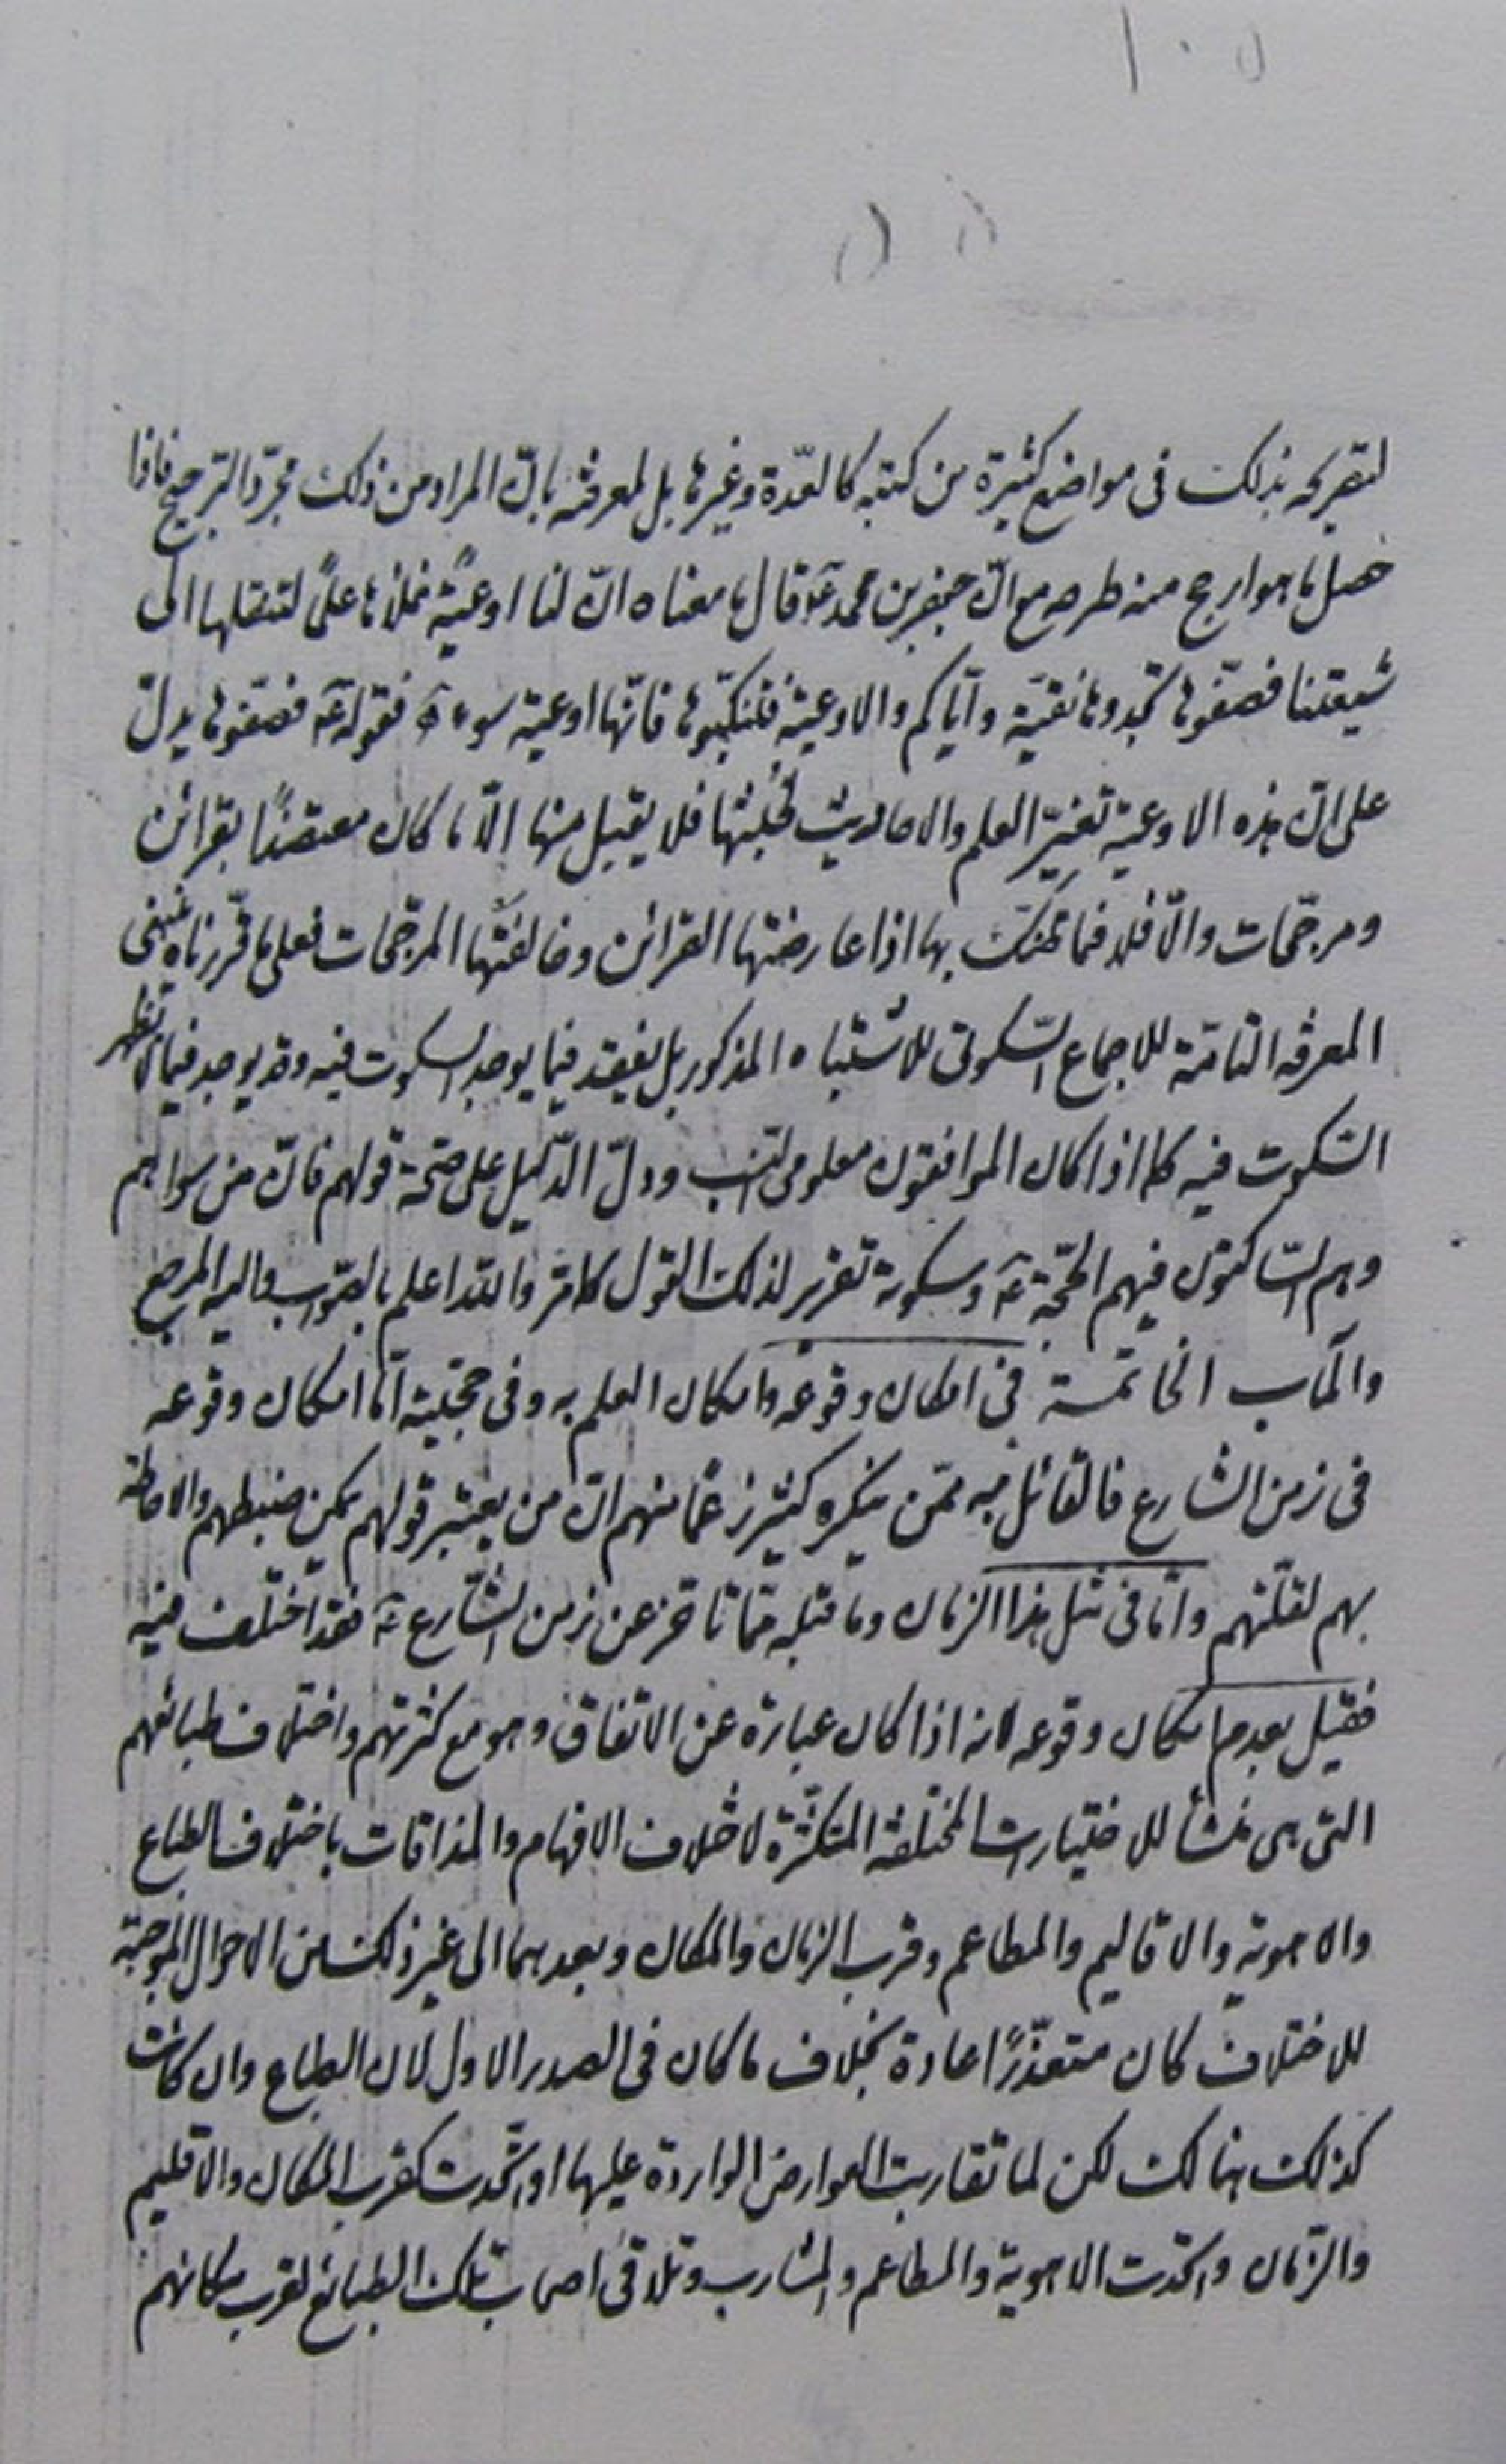 ١٠٥
لتصريحه بذلك فى مواضع كثيرة من كتبه كالعدّة وغيرها بل لمعرفته بانّ المراد من ذلك مجرّد الترجيح فاذا
حصل ما هو ارجح منه طرحه مع انّ جعفر بن محمد عۤ قال ما معناه انّ لنا اوعيةً نملأها علماً لتنقلها الى
شيعتنا فصفّوها تجدوها نقيّة وايّاكم والاوعية فتنكّبوها فانّها اوعية سوء فقوله عۤ فصفّوها يدلّ
على انّ هذه الاوعية تغيّر العلم والاحاديث فلا يقبل منها الّا ما كان معتضداً بقرائن
ومرجّحات والّا فلا فما ظنك بها اذا عارضتها القرائن وخالفتها المرجّحات فعلى ما قرّرناه ينبغى
المعرفة التامّة للاجماع السّكوتى للاشتباه المذكور بل يفقد فيما يوجد السكوت فيه وقد يوجد فيما لا يظهر
السّكوت فيه كما اذا كان الموافقون معلومى النسب ودلّ الدّليل على صحّة قولهم فانّ من سواهم
وهم السّاكتون فيهم الحجّة عۤ وسكوته تقرير لذلك القول كما مرّ والله اعلم بالصّواب واليه المرجع
والمآب الخاتمة فى امكان وقوعه وامكان العلم به وفى حجّيته امّا امكان وقوعه
فى زمن الشارع فالقائل به ممّن ينكره كثير زعماً منهم انّ من يعتبر قولهم يمكن ضبطهم والاحاطة
بهم لقلّتهم وامّا فى مثل هذا الزمان وما قبله ممّا تاخّر عن زمن الشّارع عۤ فقد اختلف فيه
فقيل بعدم امكان وقوعه لانه اذا كان عبارة عن الاتفاق وهو مع كثرتهم واختلاف طبائعهم
التى هى منشأ للاختيارات المختلفة المتكثّرة لاختلاف الافهام والمذاقات باختلاف الطباع
والاهوية والاقاليم والمطاعم وقرب الزمان والمكان وبعدهما الى غير ذلك من الاحوال الموجبة
للاختلاف كان متعذّراً عادة بخلاف ما كان فى الصدر الاول لان الطباع وان كانت
كذلك هنالك لكن لما تقاربت العوارض الواردة عليها او اتّحدت كقرب المكان والاقليم
والزّمان واتّحدت الاهوية والمطاعم والمشارب وتلاقى اصحاب تلك الطبائع لقرب مكانهم